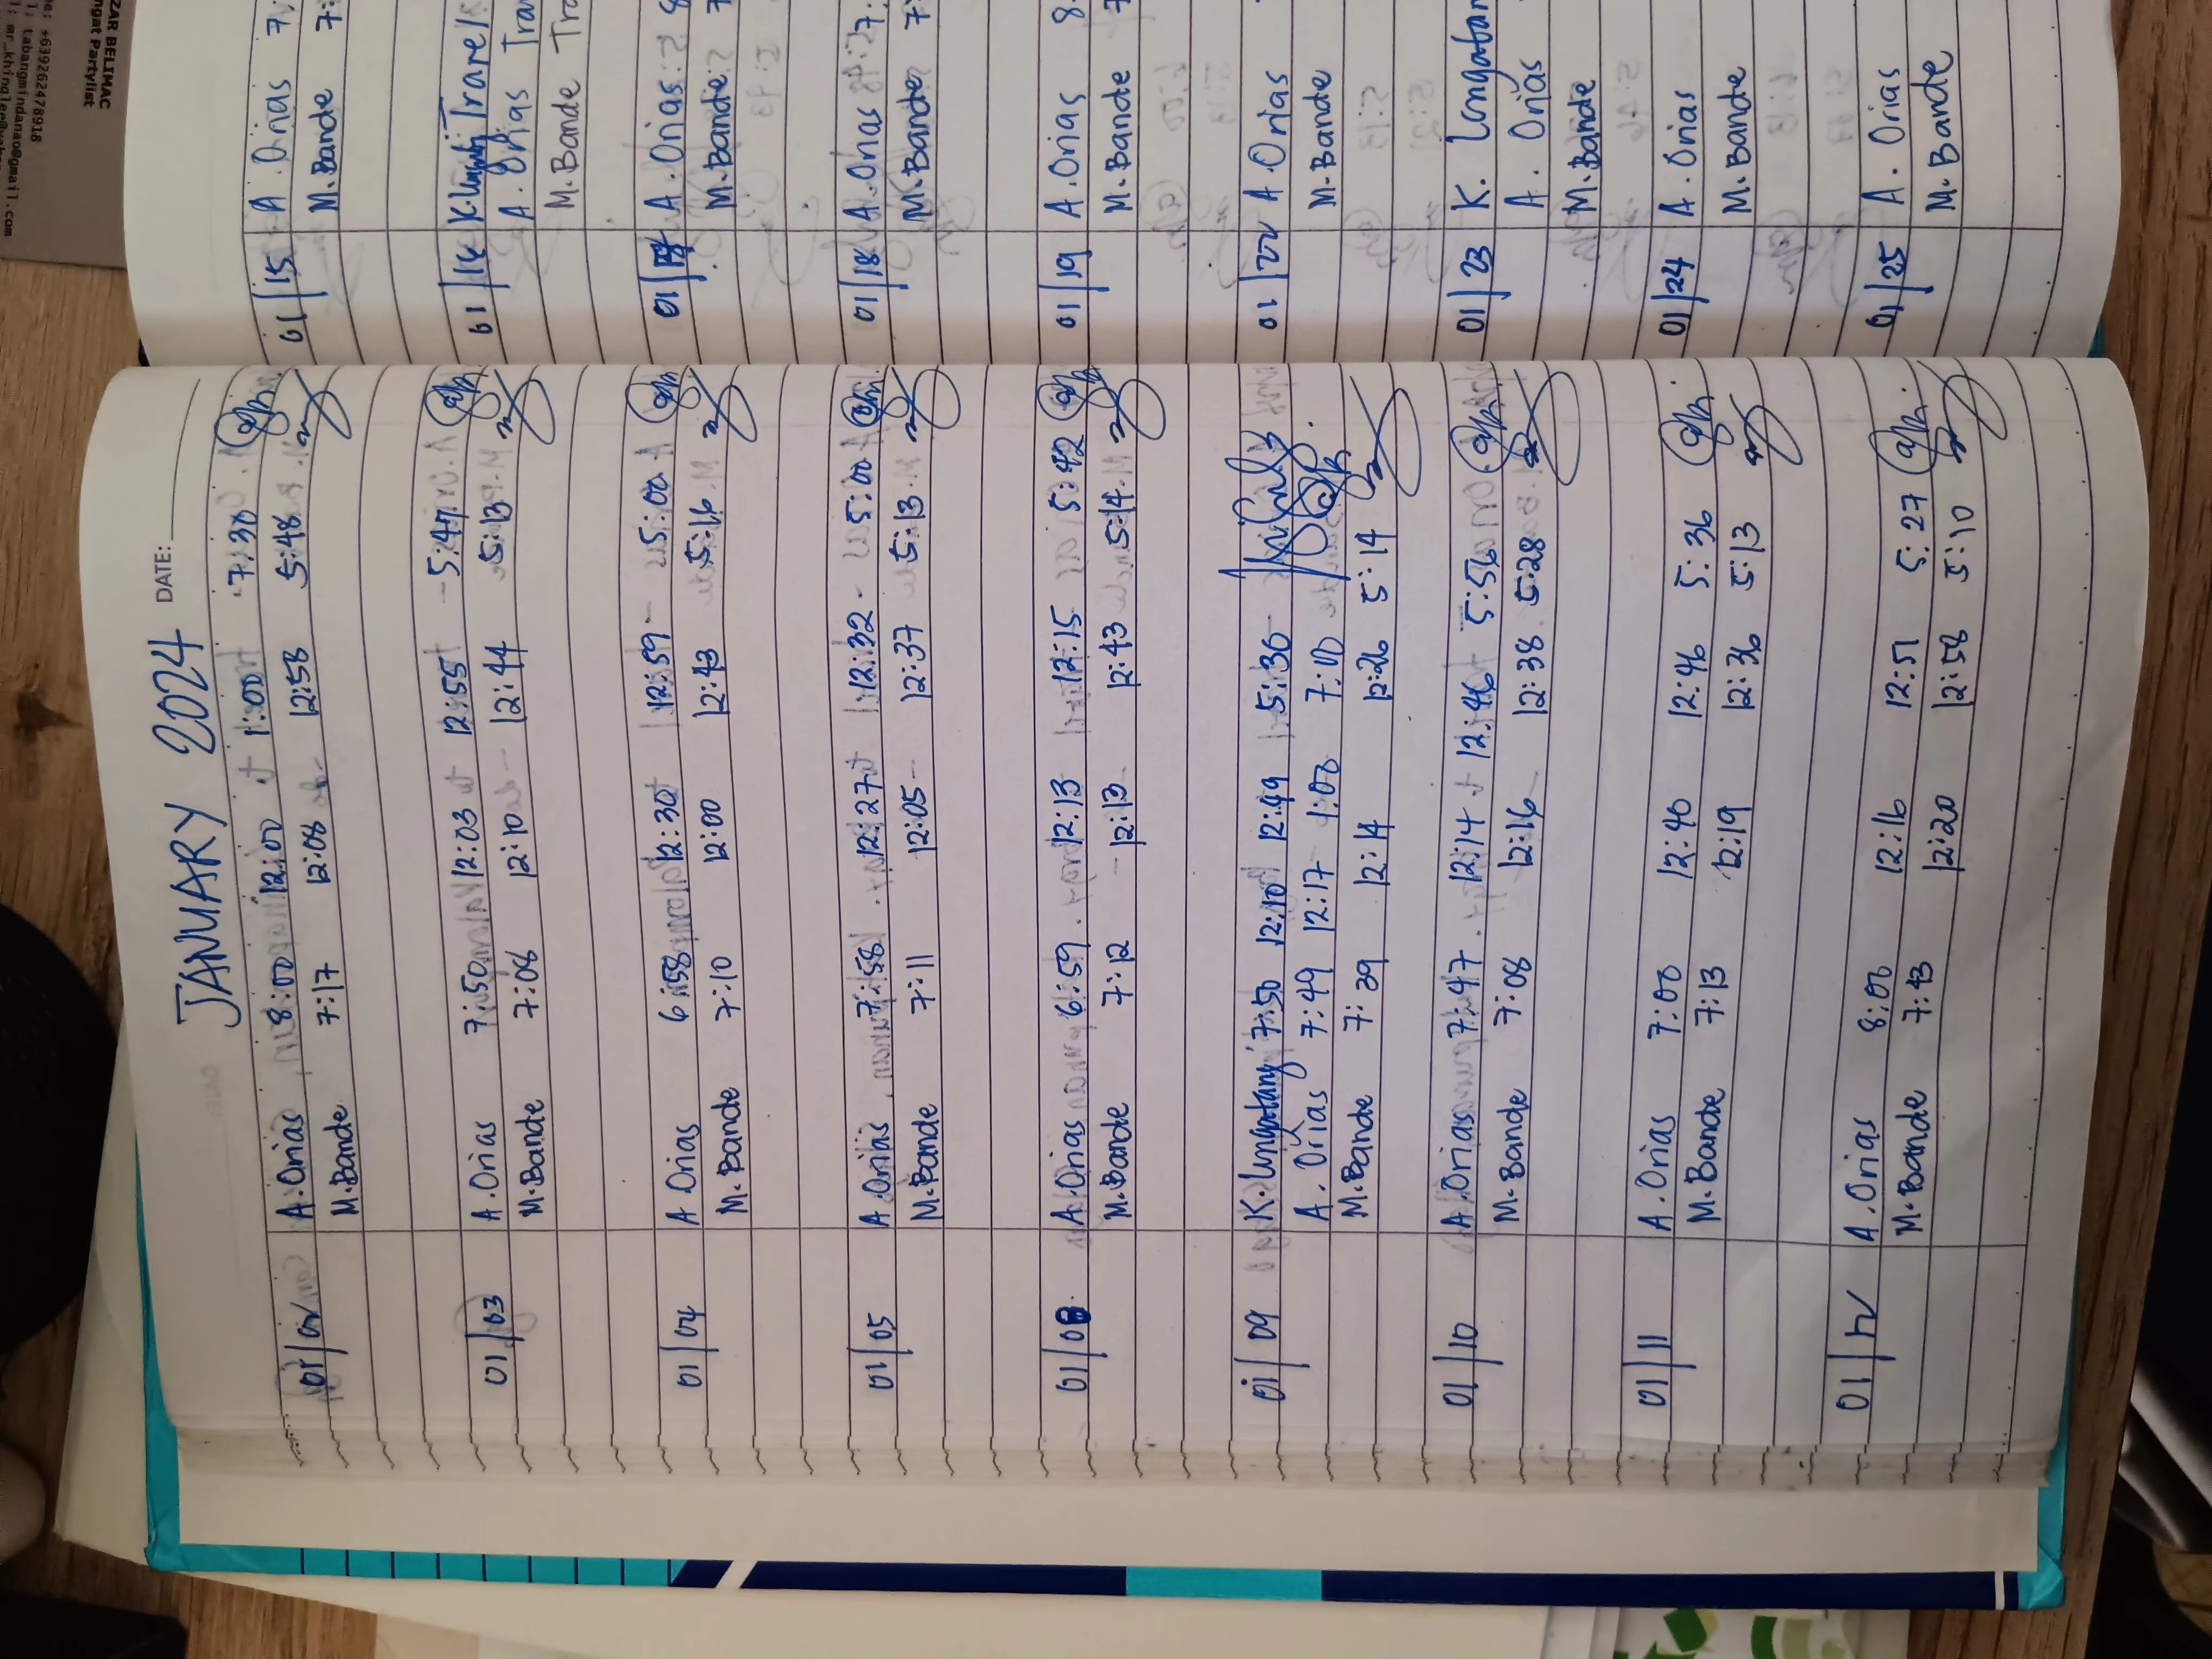 DATE:
JANUARY 2024
01/02 A. Orias 8:00 12:00 1:00 7:30
M. Bande 7:17 12:08 12:58 5:48
01/03 A. Orias 7:50 12:03 12:55 5:47
M. Bande 7:08 12:10 12:44 5:13
01/04 A. Orias 6:58 12:30 12:59 5:00
M. Bande 7:10 12:00 12:43 5:16
01/05 A. Orias 7:58 12:27 12:32 5:00
M. Bande 7:11 12:05 12:37 5:13
01/08 A. Orias 6:59 12:13 12:15 5:42
M. Bande 7:12 12:13 12:43 5:14
01/09 K. 7:50 12:10 12:49 5:30
A. Orias 7:49 12:17 1:00 7:00
M. Bande 7:39 12:14 12:26 5:14
01/10 A. Orias 7:47 12:14 12:46 5:56
M. Bande 7:08 12:16 12:38 5:28
01/11 A. Orias 7:00 12:40 12:46 5:36
M. Bande 7:13 12:19 12:36 5:13
01/12 A. Orias 8:00 12:16 12:51 5:27
M. Bande 7:43 12:20 12:58 5:10
01/15 A. Orias 7:
M. Bande 7:
01/16 K.
A. Orias Tra
M. Bande Tra
01/17 A. Orias
M. Bande 7
01/18 A. Orias 7:
M. Bande 7:
01/19 A. Orias 8
M. Bande 7
01/22 A. Orias
M. Bande
01/23 K.
A. Orias
M. Bande
01/24 A. Orias
M. Bande
01/25 A. Orias
M. Bande
ZAR BELIMAC
ngat Partylist
e: +639262478918
l: tabangmindanao@gmail.com